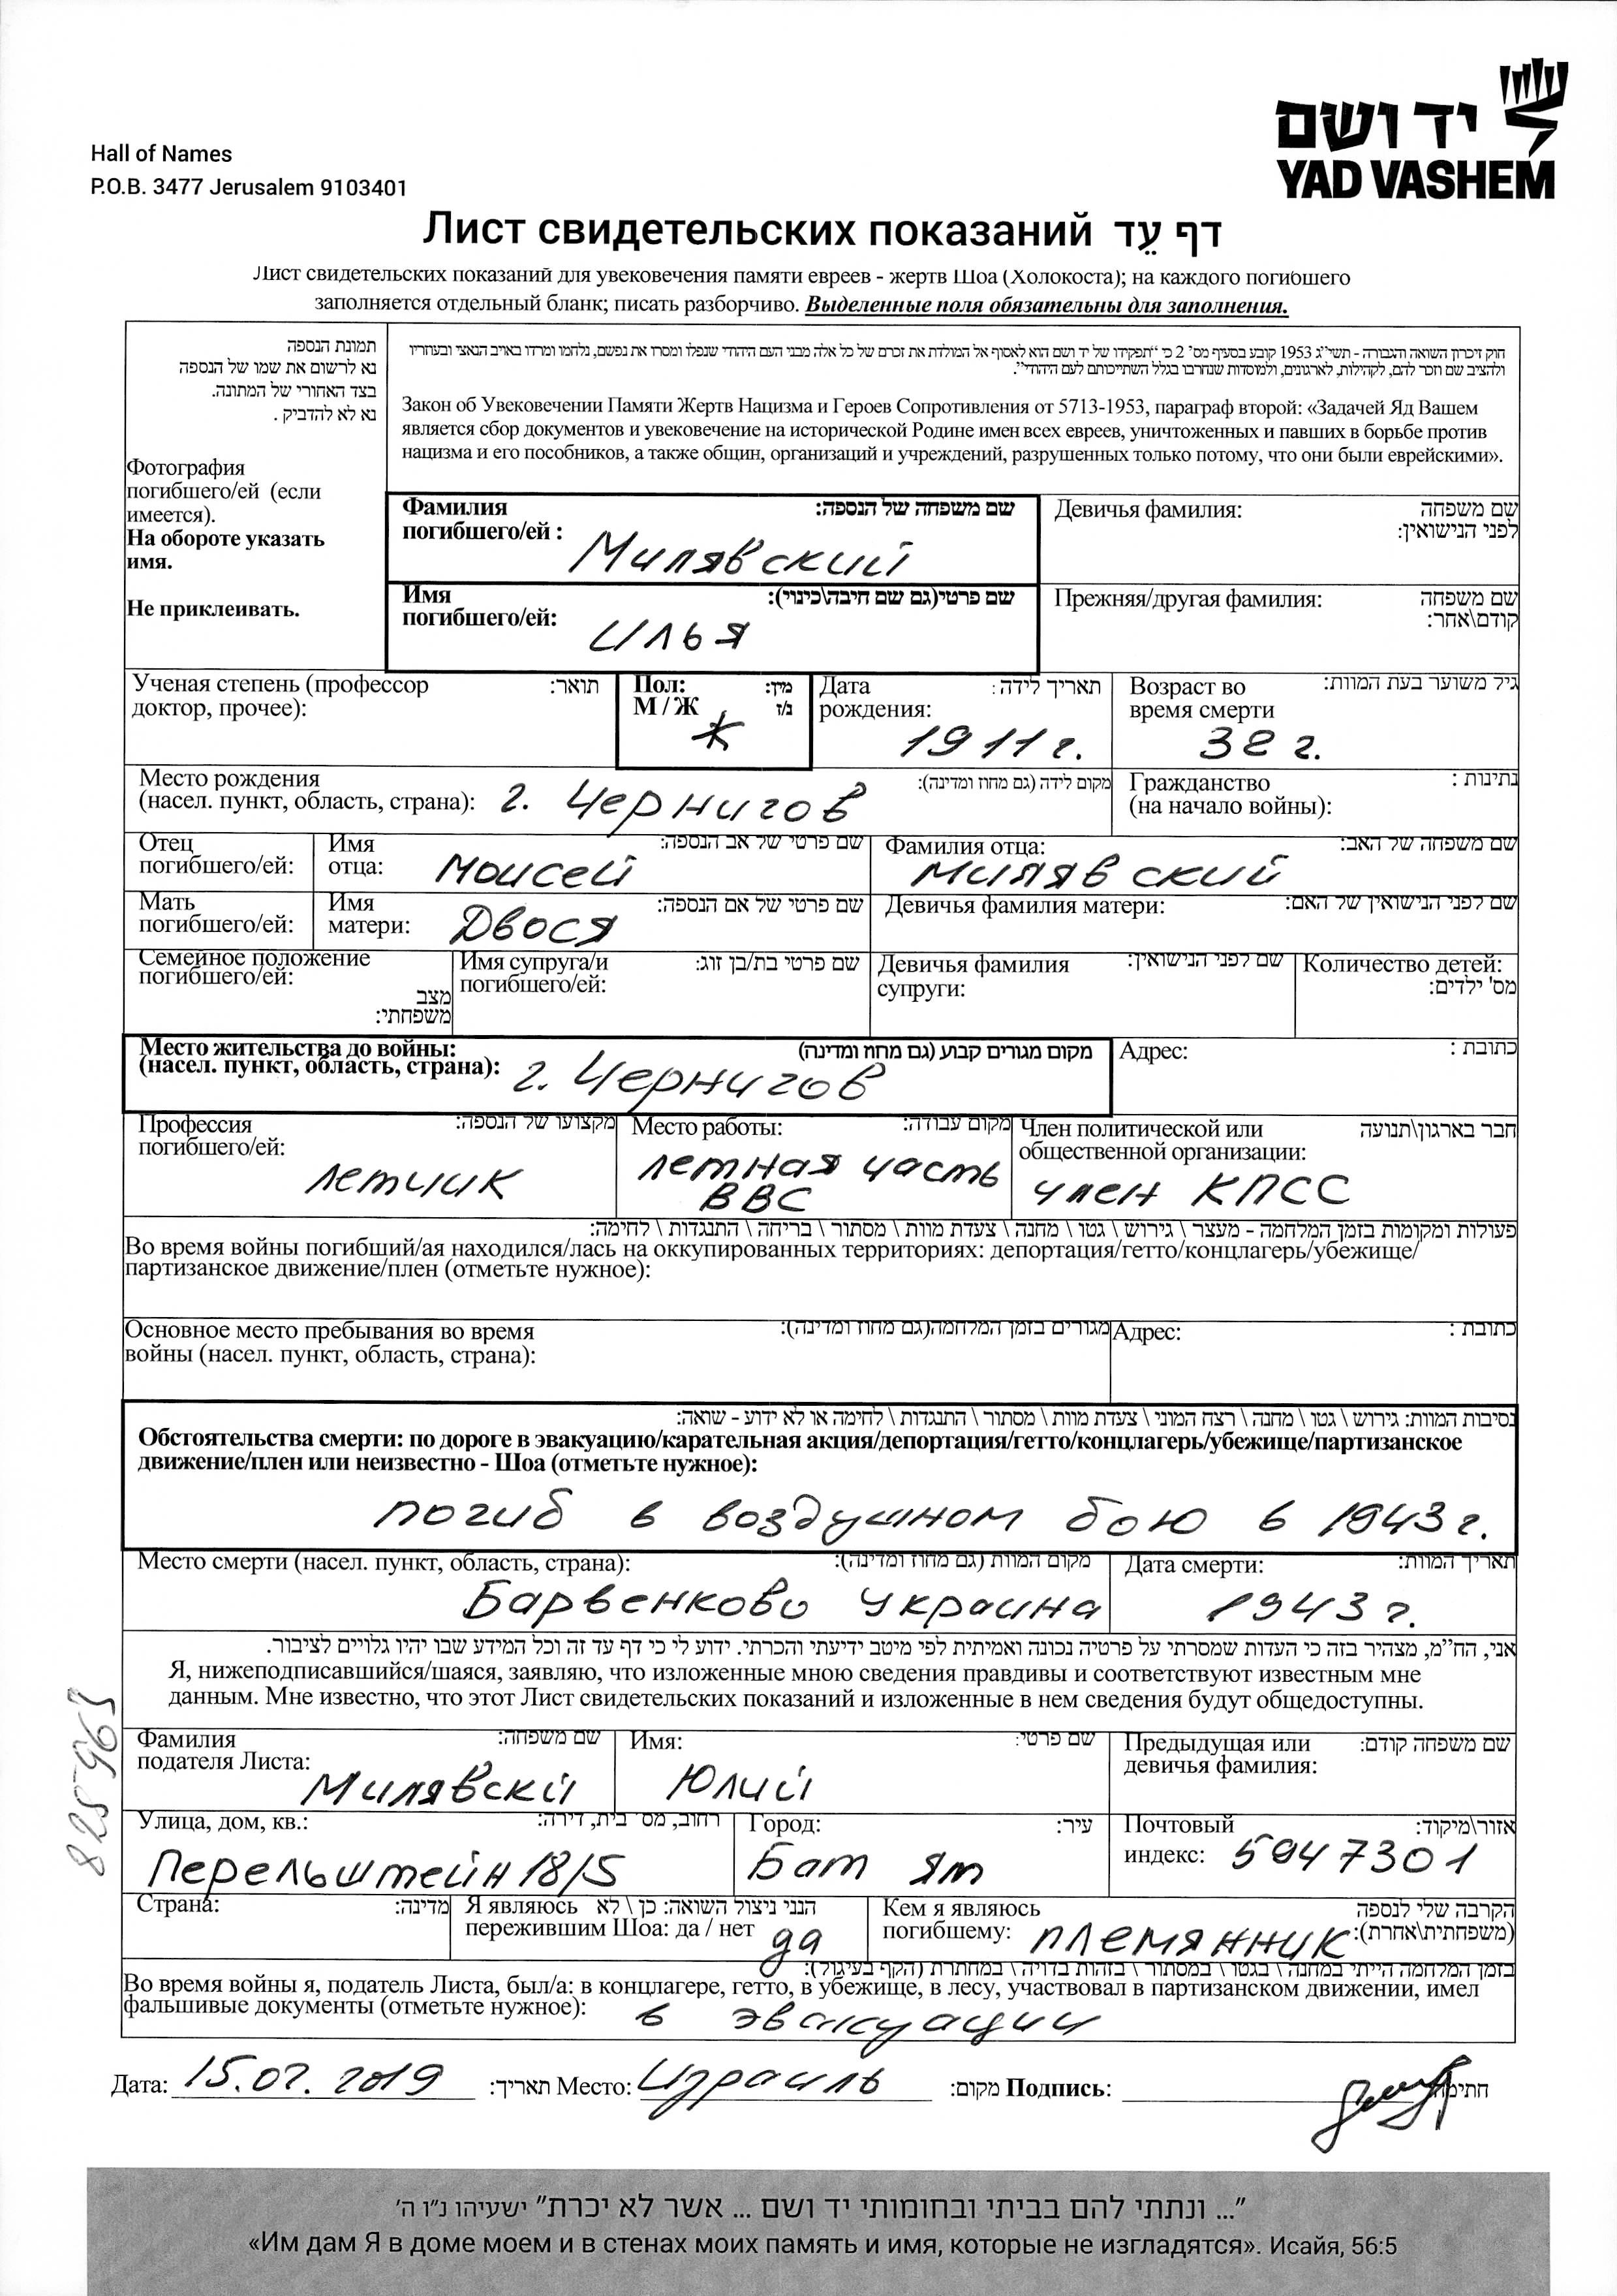 יד ושם
YAD VASHEM
Hall of Names
P.O.B. 3477 Jerusalem 9103401
Лист свидетельских показаний דף עֵד
Лист свидетельских показаний для увековечения памяти евреев - жертв Шоа (Холокоста); на каждого погибшего
заполняется отдельный бланк; писать разборчиво. Выделенные поля обязательны для заполнения.
תמונת הנספה
נא לרשום את שמו של הנספה
בצד האחורי של התמונה.
נא לא להדביק .
Фотография
погибшего/ей (если
имеется).
На обороте указать
имя.
Не приклеивать.
חוק זיכרון השואה והגבורה - תשי"ג 1953 קובע בסעיף מס' 2 כי "תפקידו של יד ושם הוא לאסוף אל המולדת את זכרם של כל אלה מבני העם היהודי שנפלו ומסרו את נפשם, נלחמו ומרדו באויב הנאצי ובעוזריו
ולהציב שם וזכר להם, לקהילות, לארגונים, ולמוסדות שנחרבו בגלל השתייכותם לעם היהודי".
Закон об Увековечении Памяти Жертв Нацизма и Героев Сопротивления от 5713-1953, параграф второй: «Задачей Яд Вашем
является сбор документов и увековечение на исторической Родине имен всех евреев, уничтоженных и павших в борьбе против
нацизма и его пособников, а также общин, организаций и учреждений, разрушенных только потому, что они были еврейскими».
Фамилия שם משפחה של הנספה:
погибшего/ей : Милявский
Девичья фамилия: שם משפחה
לפני הנישואין:
Имя שם פרטי(גם שם חיבה\כינוי):
погибшего/ей: Илья
Прежняя/другая фамилия: שם משפחה
קודם\אחר:
Ученая степень (профессор תואר:
доктор, прочее):
Пол: מין:
М / Ж ז/נ
Дата תאריך לידה :
рождения: 1911 г.
Возраст во גיל משוער בעת המוות:
время смерти 32 г.
Место рождения מקום לידה (גם מחוז ומדינה):
(насел. пункт, область, страна): г. Чернигов
Гражданство נתינות :
(на начало войны):
Отец
погибшего/ей:
Имя שם פרטי של אב הנספה:
отца: Моисей
Фамилия отца: שם משפחה של האב:
Милявский
Мать
погибшего/ей:
Имя שם פרטי של אם הנספה:
матери: Двося
Девичья фамилия матери: שם לפני הנישואין של האם:
Семейное положение
погибшего/ей:
מצב
משפחתי:
Имя супруга/и שם פרטי בת/בן זוג:
погибшего/ей:
Девичья фамилия שם לפני הנישואין:
супруги:
Количество детей:
מס' ילדים:
Место жительства до войны: מקום מגורים קבוע (גם מחוז ומדינה)
(насел. пункт, область, страна): г. Чернигов
Адрес: כתובת :
Профессия מקצועו של הנספה:
погибшего/ей:
летчик
Место работы: מקום עבודה:
летная часть
ВВС
Член политической или חבר בארגון\תנועה
общественной организации:
член КПСС
פעולות ומקומות בזמן המלחמה - מעצר \ גירוש \ גטו \ מחנה \ צעדת מוות \ מסתור \ בריחה \ התנגדות \ לחימה:
Во время войны погибший/ая находился/лась на оккупированных территориях: депортация/гетто/концлагерь/убежище/
партизанское движение/плен (отметьте нужное):
Основное место пребывания во время מגורים בזמן המלחמה(גם מחוז ומדינה):
войны (насел. пункт, область, страна):
Адрес: כתובת :
נסיבות המוות: גירוש \ גטו \ מחנה \ רצח המוני \ צעדת מוות \ מסתור \ התנגדות \ לחימה או לא ידוע - שואה:
Обстоятельства смерти: по дороге в эвакуацию/карательная акция/депортация/гетто/концлагерь/убежище/партизанское
движение/плен или неизвестно - Шоа (отметьте нужное):
погиб в воздушном бою в 1943 г.
Место смерти (насел. пункт, область, страна): מקום המוות (גם מחוז ומדינה):
Барвенково Украина
Дата смерти: תאריך המוות:
1943 г.
אני, הח"מ, מצהיר בזה כי העדות שמסרתי על פרטיה נכונה ואמיתית לפי מיטב ידיעתי והכרתי. ידוע לי כי דף עד זה וכל המידע שבו יהיו גלויים לציבור.
Я, нижеподписавшийся/шаяся, заявляю, что изложенные мною сведения правдивы и соответствуют известным мне
данным. Мне известно, что этот Лист свидетельских показаний и изложенные в нем сведения будут общедоступны.
Фамилия שם משפחה:
подателя Листа: Милявскй
Имя: שם פרטי:
Юлий
Предыдущая или שם משפחה קודם:
девичья фамилия:
Улица, дом, кв.: רחוב, מס' בית, דירה:
Перельштейн 18/5
Город: עיר:
Бат Ям
Почтовый אזור\מיקוד:
индекс: 5947301
Страна: מדינה:
Я являюсь הנני ניצול השואה: כן \ לא
пережившим Шоа: да / нет да
Кем я являюсь הקרבה שלי לנספה
погибшему: племянник (משפחתית\אחרת):
בזמן המלחמה הייתי במחנה \ בגטו \ במסתור \ בזהות בדויה \ במחתרת (הקף בעיגול):
Во время войны я, податель Листа, был/а: в концлагере, гетто, в убежище, в лесу, участвовал в партизанском движении, имел
фальшивые документы (отметьте нужное): в эвакуации
Дата: 15.02.2019 תאריך: Место: Израиль מקום: Подпись: חתימה
825965
"... ונתתי להם בביתי ובחומותי יד ושם ... אשר לא יכרת" ישעיהו נ"ו ה'
«Им дам Я в доме моем и в стенах моих память и имя, которые не изгладятся». Исайя, 56:5